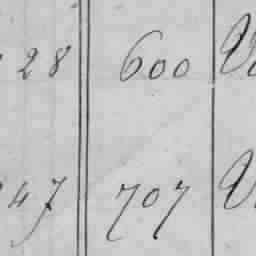 28 600
47 707